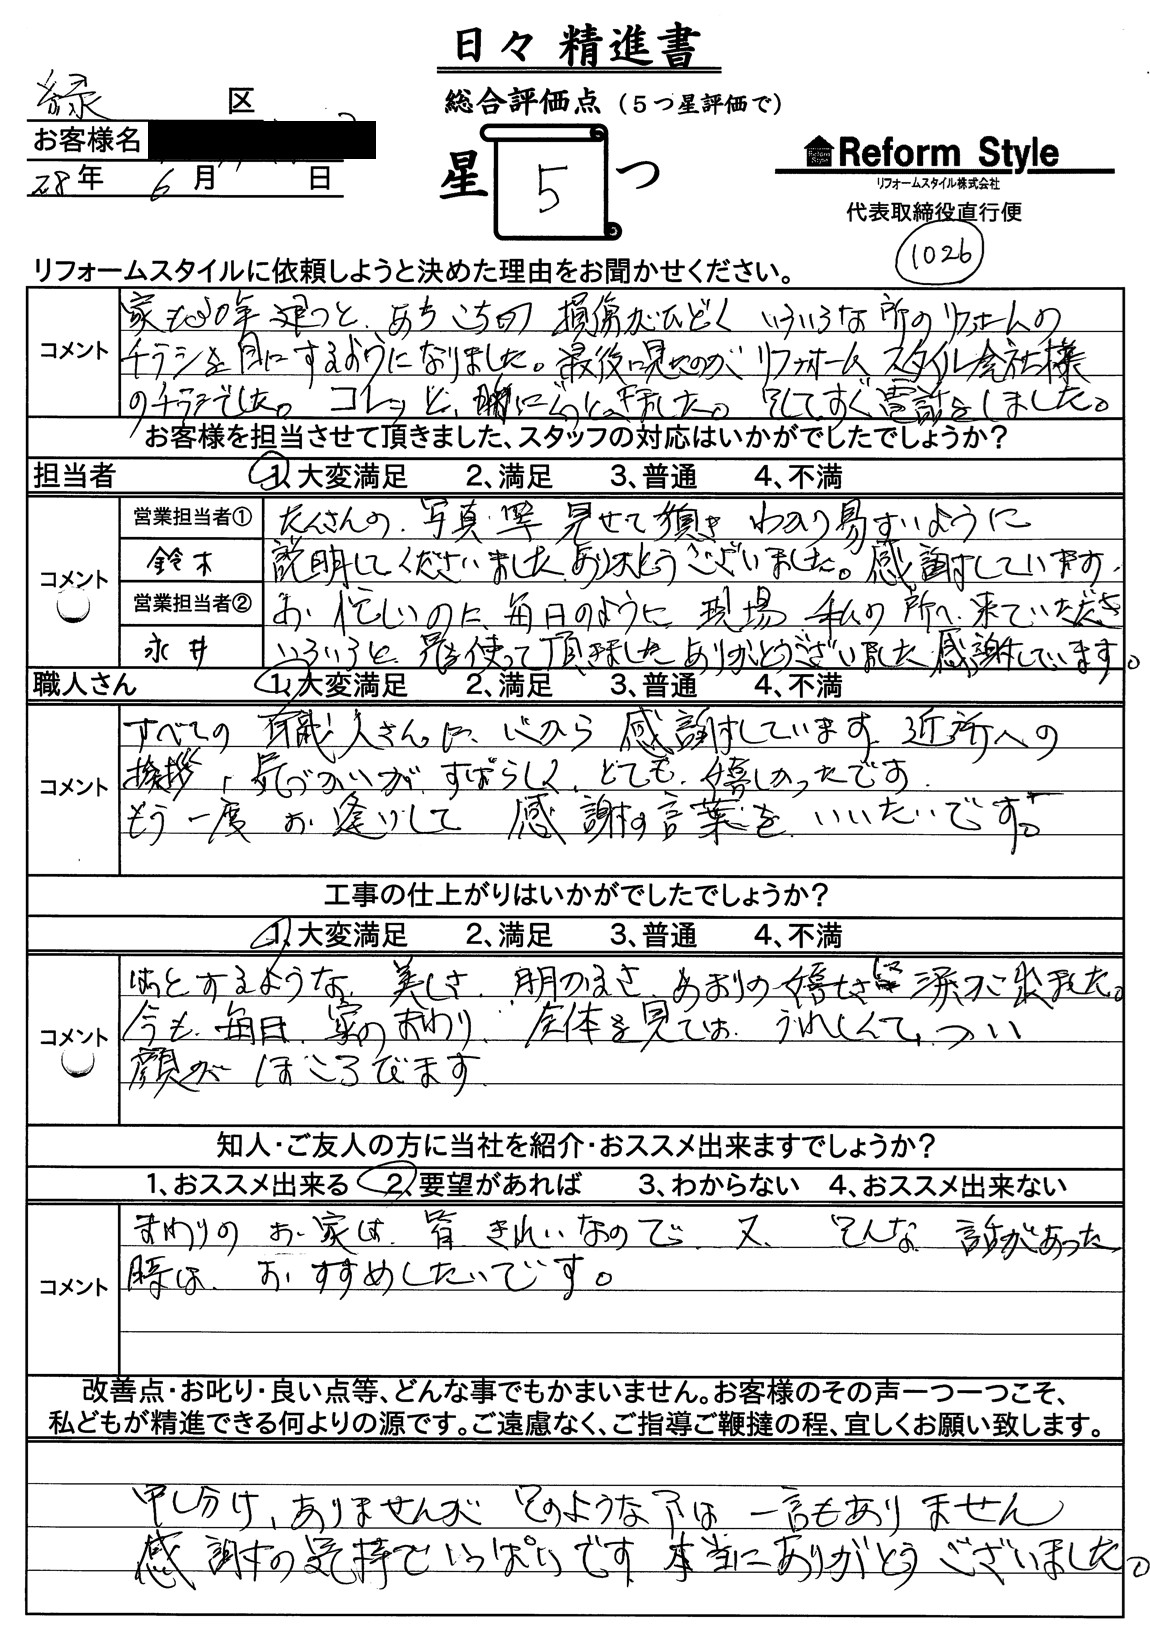 日々 精進書
緑 区
総合評価点（5つ星評価で）
お客様名
28年 6月 日
星 5 つ
Reform Style
リフォームスタイル株式会社
代表取締役直行便
1026
リフォームスタイルに依頼しようと決めた理由をお聞かせください。
コメント
家も30年建つと、あちこちの 損傷がひどく いろいろな所のリフォームの
チラシを目にするようになりました。最後に見たのが リフォーム スタイル会社様
のチラシでした。 コレッと、胸にぐっときました。そしてすぐ電話をしました。
お客様を担当させて頂きました、スタッフの対応はいかがでしたでしょうか？
担当者 1、大変満足 2、満足 3、普通 4、不満
コメント
営業担当者① たくさんの、写真等 見せて頂き わかり易すいように
鈴木 説明してくださいました。ありがとうございました。感謝しています。
営業担当者② お忙しいのに、毎日のように 現場 私の所へ来ていただき
永井 いろいろと、気を使って頂きました ありがとうございました 感謝しています。
職人さん 1、大変満足 2、満足 3、普通 4、不満
コメント
すべての 職人さんに、心から 感謝しています。近所への
挨拶、気づかいが、すばらしく、とても、嬉しかったです。
もう一度 お逢いして 感謝の言葉を、いいたいです。
工事の仕上がりはいかがでしたでしょうか？
1、大変満足 2、満足 3、普通 4、不満
コメント
はっとするような、美しさ、明かるさ、あまりの嬉しさに 涙がこ出ました。
今も、毎日、家のまわり、全体を見ては、うれしくて、つい
顔が ほころびます。
知人・ご友人の方に当社を紹介・おススメ出来ますでしょうか？
1、おススメ出来る 2、要望があれば 3、わからない 4、おススメ出来ない
コメント
まわりの お家は、皆 きれいなので、又、そんな 話があった
時は、おすすめしたいです。
改善点・お叱り・良い点等、どんな事でもかまいません。お客様のその声一つ一つこそ、
私どもが精進できる何よりの源です。ご遠慮なく、ご指導ご鞭撻の程、宜しくお願い致します。
申し分け、ありませんが そのような事は 一言もありません
感謝の気持でいっぱいです。本当にありがとうございました。